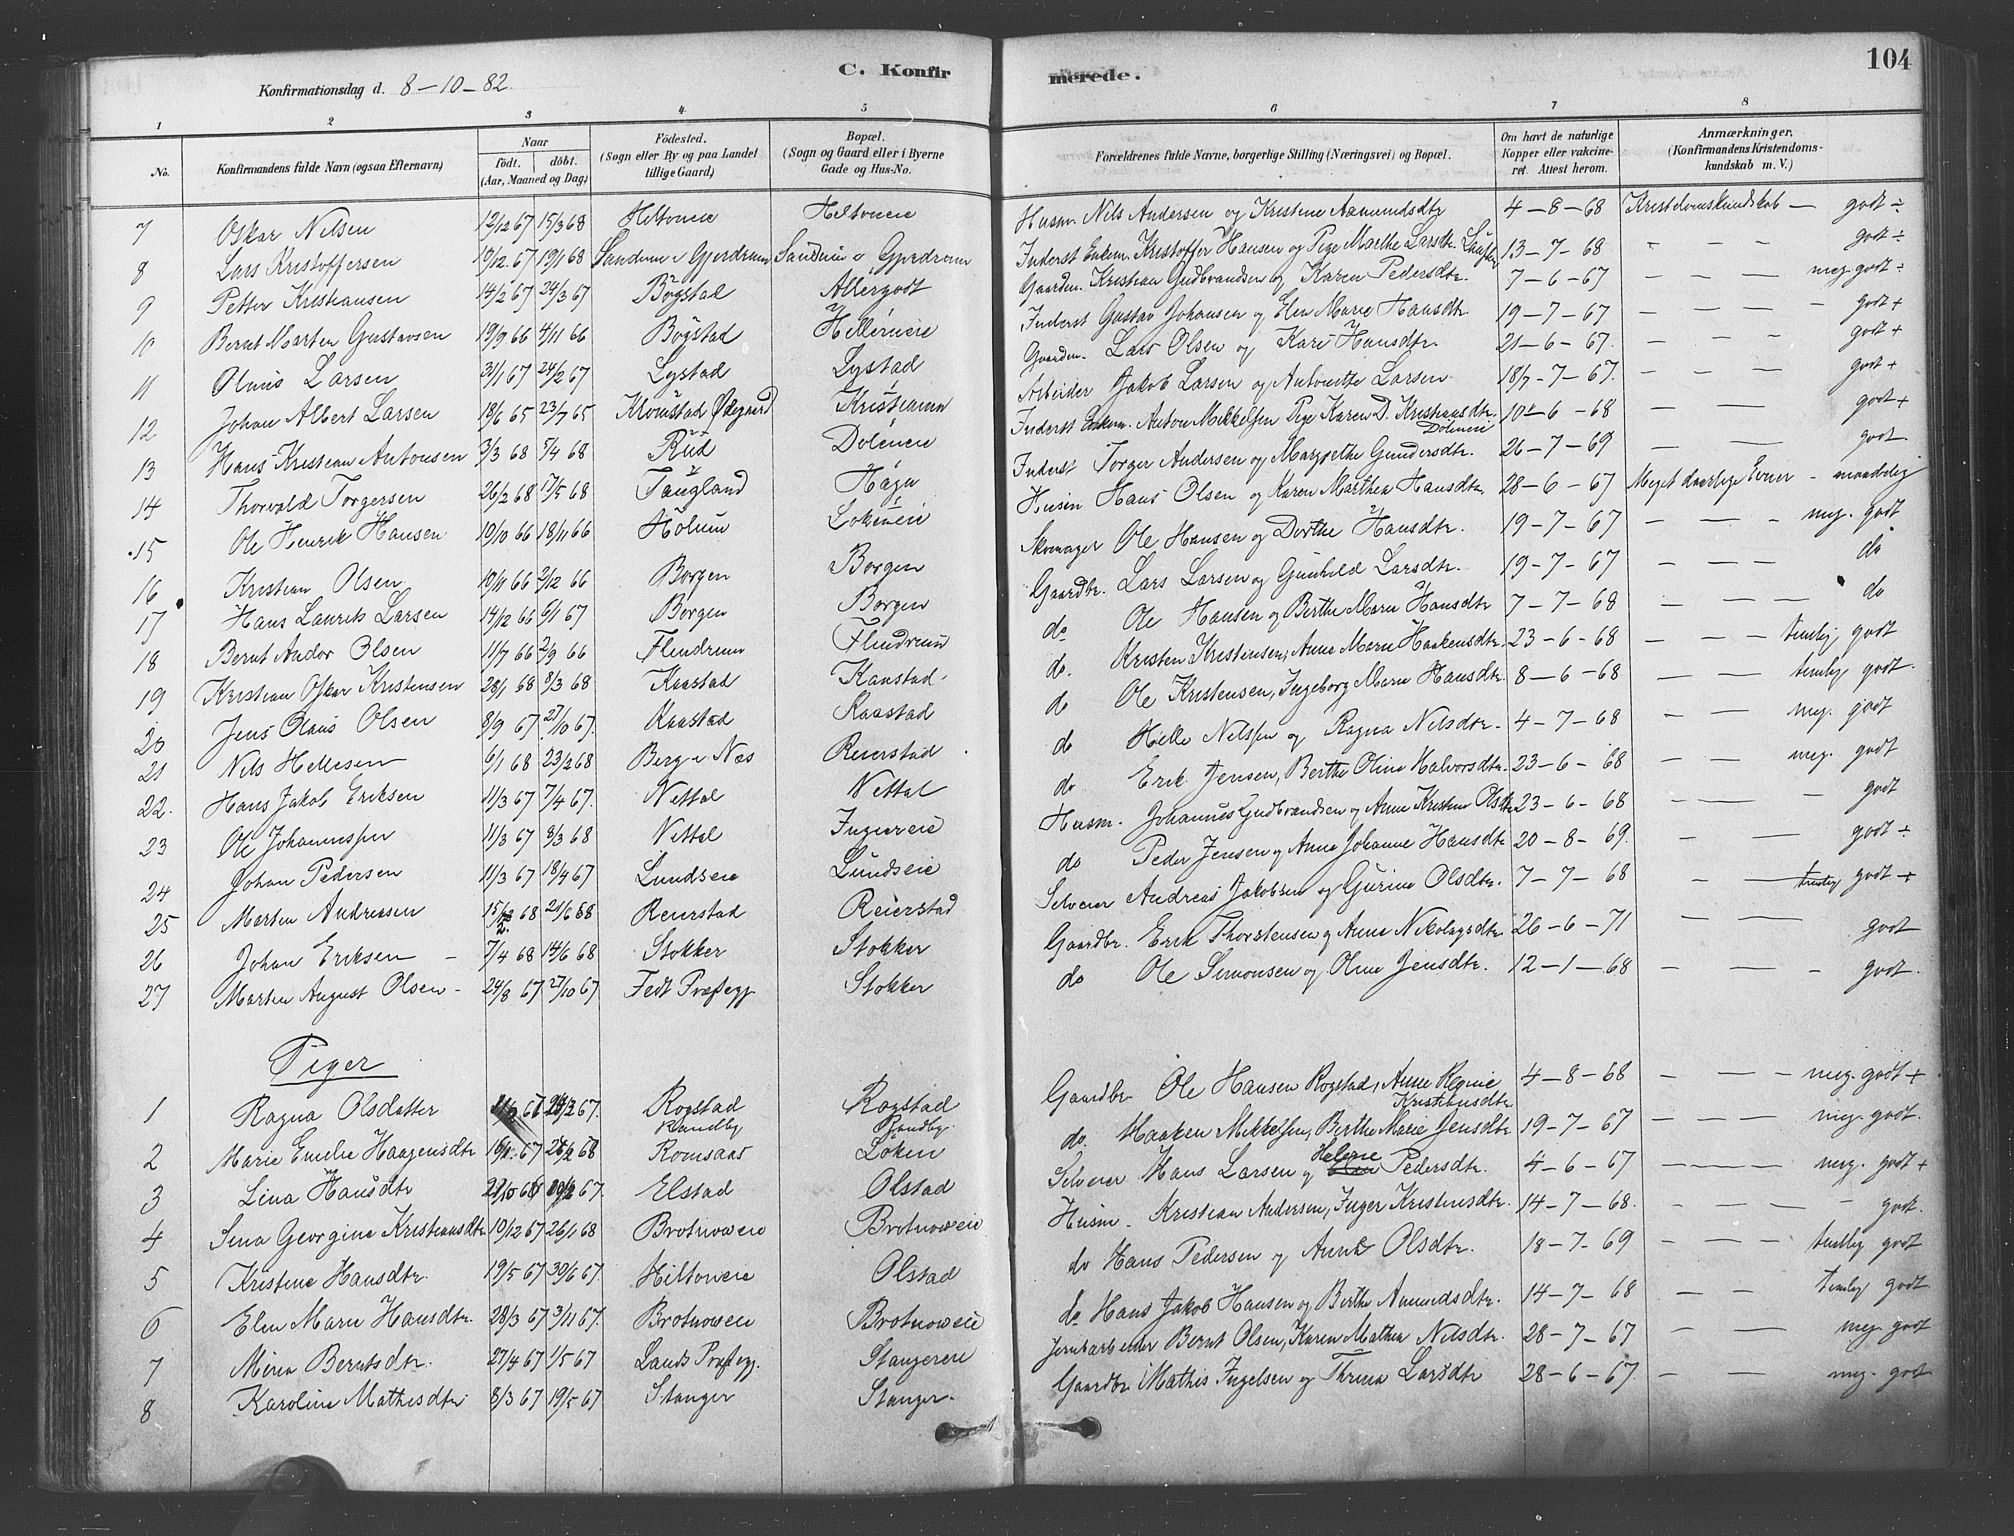 C. Konfirmerede. 104
Konfirmationsdag d. 8-10-82.
1 2 3 4 5 6 7 8
No. Konfirmandens fulde Navn (ogsaa Efternavn) Naar født. døbt. (Aar, Maaned og Dag) Fødested. (Sogn eller By og paa Landet tillige Gaard) Bopæl. (Sogn og Gaard eller i Byerne Gade og Hus-No. Forældrenes fulde Navne, borgerlige Stilling (Næringsvei) og Bopæl. Om havt de naturlige Kopper eller vakcineret. Attest herom. Anmærkninger. (Konfirmandens Kristendomskundskab m. V.)
7 Oskar Nilsen 12/12 67 15/3 68 Hiltoneie Hiltoneie Husm. Nils Andersen og Kristine Aamundsdtr 4-8-68 Kristdomskundskab - godt ÷
8 Lars Kristoffersen 10/12 67 19/1 68 Sandum i Gjerdrum Sandum i Gjerdrum Inderst Enkem. Kristoffer Hansen og Pige Marthe Larsdtr. 13-7-68 - - - godt ÷
9 Petter Kristiansen 14/2 67 24/3 67 Bögstad Allergodt Gaardm. Kristian Gudbrandsen og Karen Pedersdtr. 7-6-67 - - - meg. godt ÷
10 Bernt Martin Gustavsen 19/9 66 4/11 66 Bögstad Hellerneie Inderst Gustav Johansen og Elen Marie Hansdtr 19-7-67 - - - godt +
11 Olaus Larsen 31/1 67 24/2 67 Lystad Lystad Gaardm. Lars Olsen og Kari Hansdtr. 21-6-67. - - - godt +
12 Johan Albert Larsen 18/6 65 23/7 65 Kromstad Ødegaard Kristiania Arbeider Jakob Larsen og Antonette Larsen. 18/7-7-67. - - - godt +
13 Hans Kristian Antonsen 3/3 68 5/4 68 Rud Döleneie Inderst Enkem. Anton Mikkelsen Pige Karen D. Kristiansdtr. Döleneie 10-6-68 - - godt +
14 Thorvald Torgersen 26/2 68 17/5 68 Taugland Haga Inderst Torger Andersen og Margrethe Gundersdtr. 26-7-69 - - godt
15 Ole Henrik Hansen 10/10 66 18/11 66 Holum Lökeneie Husm Hans Olsen og Karen Marthea Hansdtr 28-6-67 Meget daarlige Evner - maadelig
16 Kristian Olsen 10/11 66 2/12 66 Borgen Borgen Skomager Ole Hansen og Dorthe Hansdtr. 19-7-67 - - - meg. godt
17 Hans Laurits Larsen 14/12 66 6/1 67 Borgen Borgen Gaardbr. Lars Larsen og Gunhild Larsdtr. 19-7-67 - - - do
18 Bernt Andor Olsen 11/7 66 2/9 66 Flendrum Flendrum do Ole Hansen og Berthe Marie Hansdtr 7-7-68 - - - do
19 Kristian Oskar Kristensen 28/1 68 8/3 68 Kaastad Kaastad do. Kristen Kristensen, Anne Marie Haakensdtr. 23-6-68 - - - temlig godt
20 Jens Olaus Olsen 8/9 67 27/10 67. Kaastad Kaastad do Ole Kristensen, Ingeborg Marie Hansdtr. 8-6-68 - - - temlig godt.
21 Nils Hellesen 6/1 68 23/2 68 Berg i Næs Reierstad do Helle Nilssen og Ragna Nilsdtr. 4-7-68 - - - meg. godt
22. Hans Jakob Eriksen 11/3 67 7/4 67. Nettal Nettal do Erik Jensen, Berthe Oline Halvorsdtr. 23-6-68 - - - meg. godt
23 Ole Johannssen 11/3 67 8/3 68 Nettal Ingiereie Husm. Johannes Gudbrandsen og Anne Kristine Olsdtr 23-6-68 - - - godt
24 Johan Pedersen 11/3 67 18/4 67 Lundseie Lundseie do Peder Jensen og Anne Johanne Hansdtr 20-8-69. - - godt ÷
25 Martin Andreasen 15/2 68 21/6 68 Reierstad Reierstad Selveier Andreas Jakobsen og Gurine Olsdtr. 7-7-68 - - temlig godt +
26 Johan Eriksen - 7/4 68 14/6 68 Stokker Stokker Gaardbr. Erik Thorstensen og Anne Nikolaysdtr 26-6-71 - - - godt
27 Martin August Olsen - 24/8 67. 27/10 67 Fedt Præstegj. Stokker do Ole Simonsen og Oline Jensdtr. 12-1-68 - - - godt.
Piger
1 Ragna Olsdatter 67 67. Rogstad Rogstad Gaardbr. Ole Hansen Rogstad, Anne Regine Kristiansdtr 4-8-68 - - - meg. godt +
2 Marie Emilie Haagensdtr 67 68 Randby Romsaas Randby. Löken do. Haaken Mikkelsen, Berthe Marie Jensdtr 19-7-67 - - - meg. godt.
3 Lina Hansdtr 67. Elstad Olstad Selveier Hans Larsen og Helene Pedersdtr. 4-6-67 - - - meg. godt +
4 Sina Georgine Kristiansdtr 10/12 67 26/1 68 Brotnoweie Brotnoweie Husm. Kristian Andersen, Inger Kristensdtr. 14-7-68. - - - godt.
5 Kristine Hansdtr. 19/5 67 30/6 67. Hiltoweie Olstad do Hans Pedersen og Anne Olsdtr. 18-7-69 - - - temlig godt
6 Elen Marie Hansdtr. 28/3 67 3/11 67. Brotnoweie Brotnoweie do Hans Jakob Hansen og Berthe Amundsdtr. 14-7-68 - - - temlig godt
7 Mina Berntsdtr. 27/4 67 1/5 67 Lands Præstegj. Stangereie Jernarbeider Bernt Olsen, Karen Mathea Nilsdtr. 28-7-67 - - - meg godt
8 Karoline Mathisdtr 8/3 67 19/5 67 Stanger Stanger. Gaardbr Mathis Ingelsen og Thrina Larsdtr 28-6-67. - - - meg. godt